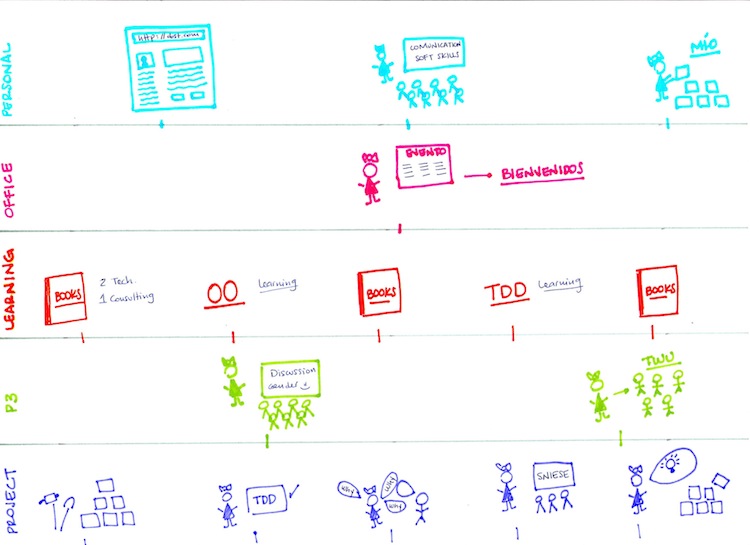 PERSONAL
http://dost.com
COMUNICATION
SOFT SKILLS
MÍO
OFFICE
EVENTO
BIENVENIDOS
LEARNING
BOOKS
2 Tech.
1 Consulting
OO
Learning
BOOKS
TDD
Learning
BOOKS
P3
Discussion
Gender
TWU
PROJECT
TDD
Why
Why
Why
SNIESE